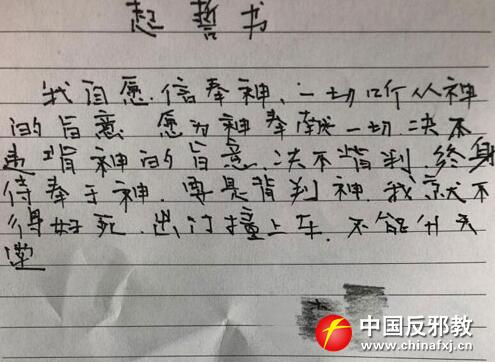 起誓书
我自愿信奉神、一切听从神
的旨意 愿为神奉献一切.决不
违背神的旨意.决不背判.终身
侍奉于神.要是背判神.我就不
得好死.出门撞上车.不能升天
堂
中国反邪教
www.chinafxj.cn